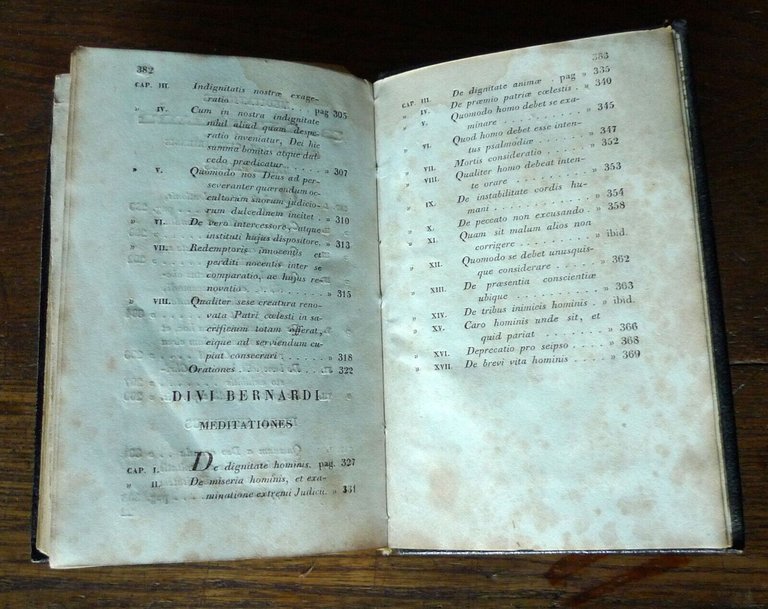 382
CAP. III. Indignitatis nostræ exage-
ratio . . . . . . . pag 305
» IV. Cum in nostra indignitate
nihil aliud quam despe-
ratio inveniatur, Dei hic
summa bonitas atque dul-
cedo prædicatur. . . . » 307
» V. Quomodo nos Deus ad per-
severanter quærendum oc-
cultorum suorum judicio-
rum dulcedinem incitet . » 310
» VI. De vero intercessore, atque
instituti hujus dispositore. » 313
» VII. Redemptoris innocentis et
perditi nocentis inter se
comparatio, ac hujus re-
novatio . . . . . . . » 315
» VIII. Qualiter sese creatura reno-
vata Patri cœlesti in sa-
crificium totam offerat,
eique ad serviendum cu-
piat consecrari . . . . » 318
Orationes . . . . . . » 322
DIVI BERNARDI
MEDITATIONES
CAP. I. De dignitate hominis. pag. 327
» II. De miseria hominis, et exa-
minatione extremi Judicii. » 331
383
CAP. III. De dignitate animæ . pag » 335
» IV. De præmio patriæ cœlestis . » 340
» V. Quomodo homo debet se exa-
minare . . . . . . . » 345
» VI. Quod homo debet esse inten-
tus psalmodiæ . . . . » 347
» VII. Mortis consideratio . . . . » 352
» VIII. Qualiter homo debeat inten-
te orare . . . . . . . » 353
» IX. De instabilitate cordis hu-
mani . . . . . . . . » 354
» X. De peccato non excusando . » 358
» XI. Quam sit malum alios non
corrigere . . . . . . . » ibid.
» XII. Quomodo se debet unusquis-
que considerare . . . . » 362
» XIII. De præsentia conscientiæ
ubique . . . . . . . » 363
» XIV. De tribus inimicis hominis . » ibid.
» XV. Caro hominis unde sit, et
quid pariat . . . . . » 366
» XVI. Deprecatio pro seipso . . . » 368
» XVII. De brevi vita hominis . . . . » 369